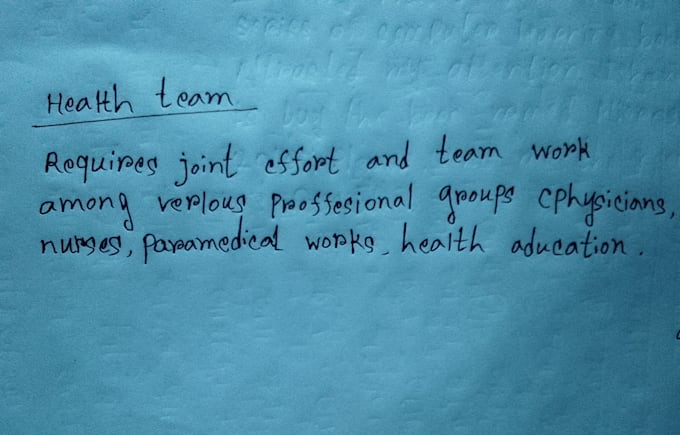 Health team
Requires joint effort and team work
among verious proffesional groups (physicians,
nurses, paramedical works, health aducation.